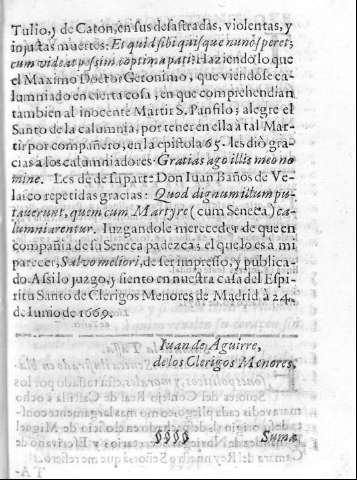 Tulio, y de Caton, en sus desastradas, violentas, y
injustas muertes: Et quid sibi quisque nunc speret;
cum videat pessima optimos pati? Haziendo lo que
el Maximo Doctor Geronimo, que viendose ca-
lumniado en cierta cosa, en que comprehendian
tambien al inocente Martir S. Panfilo; alegre el
Santo de la calumnia, por tener en ella à tal Mar-
tir por compañero, en la epistola 65. les diò gra-
cias a los calumniadores Gratias ago illis meo no-
mine. Les dè de su parte Don Iuan Baños de Ve-
lasco repetidas gracias: Quod dignum illum pu-
tauerunt, quem cum Martyre (cum Seneca) ca-
lumniarentur. Iuzgandole merecedor de que en
compañia de su Seneca padezca; el que lo es a mi
parecer, Salvo meliori, de ser impresso, y publica-
do. Assi lo juzgo, y siento en nuestra casa del Espi-
ritu Santo de Clerigos Menores de Madrid à 24.
de Iunio de 1669.
Iuan de Aguirre,
de los Clerigos Menores.
§§§§ Suma